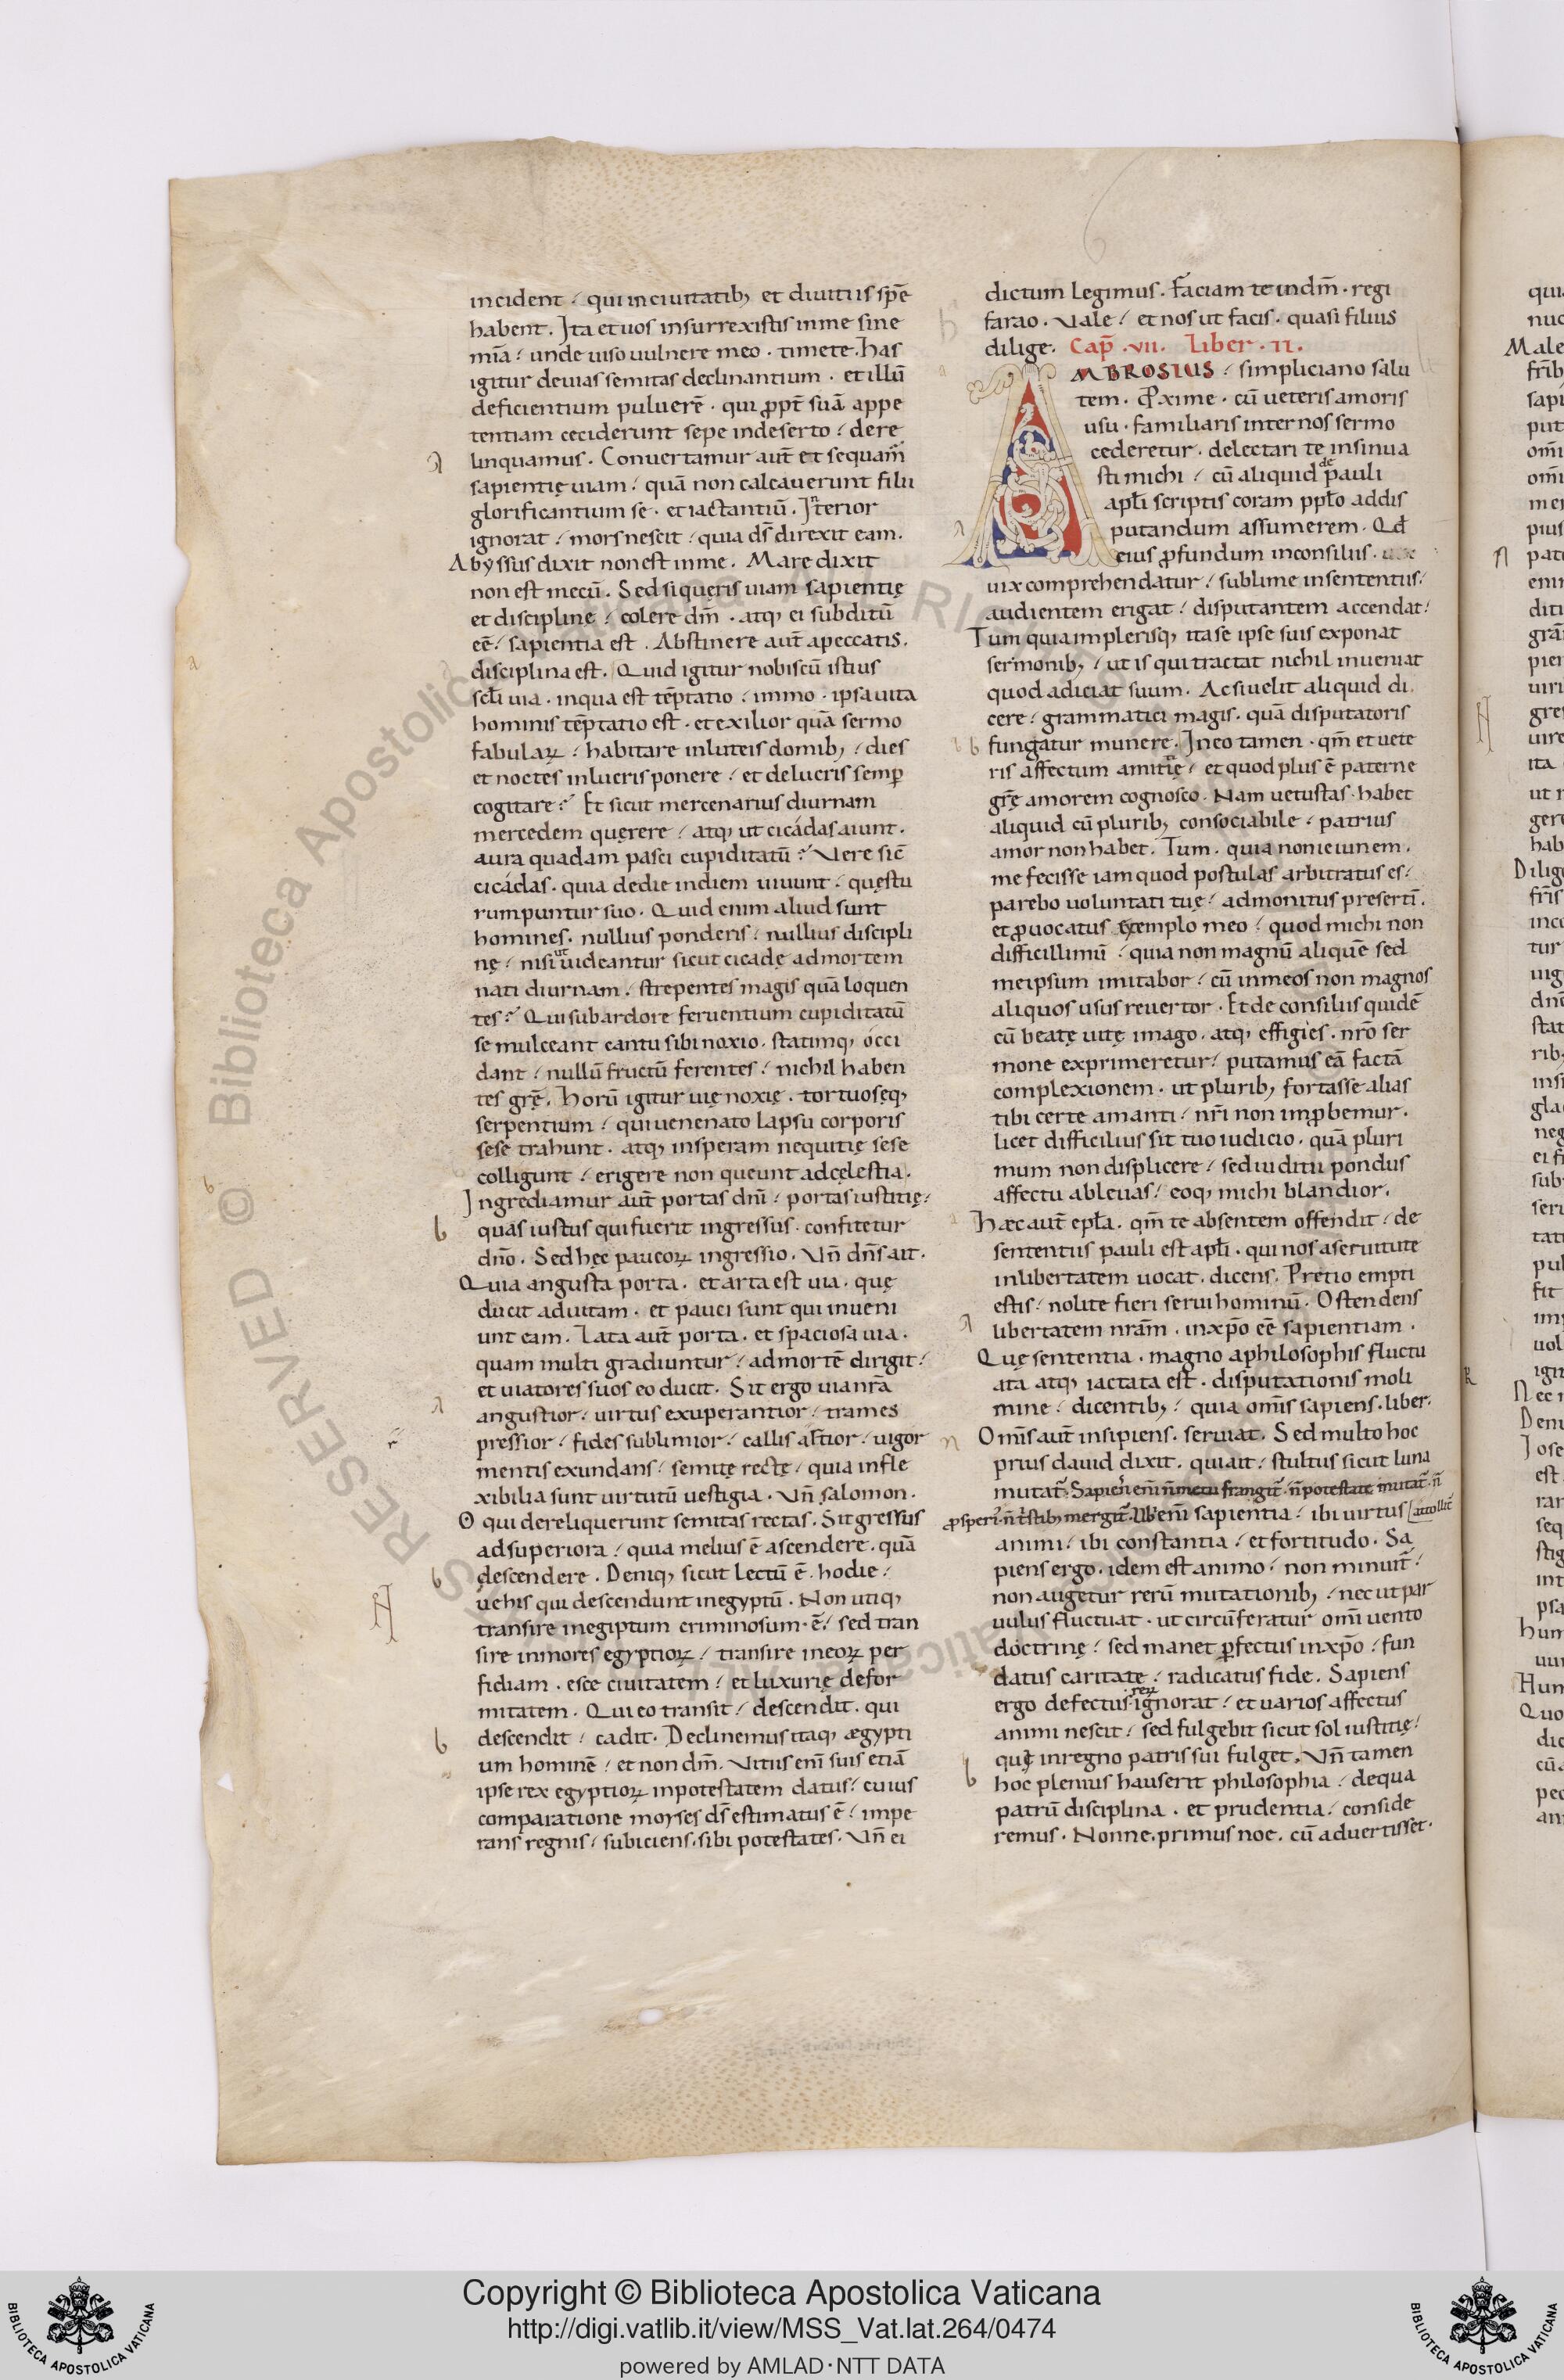 incident / qui in ciuitatibꝫ et diuitiis spē
habent. Ita et uos insurrexistis in me sine
mīa / unde uiso uulnere meo · timete. has
igitur deuias semitas declinantium · et illū
deficientium puluerē · qui ꝓpt̄ suā appe
tentiam ceciderunt sepe in deserto / dere
linquamus. Conuertamur aut̄ et sequam̄
sapientię uiam / quā non calcauerunt filii
glorificantium se · et iactantiū. Iterior
ignorat / mors nescit / quia ds̄ direxit eam.
Abyssus dixit non est in me. Mare dixit
non est mecū. Sed si quęris uiam sapientię
et discipline / colere dm̄ · atqꝫ ei subditū
eē / sapientia est. Abstinere aut̄ a peccatis.
disciplina est. Quid igitur nobiscū istius
scl̄i uia · in qua est tēptatio / immo · ipsa uita
hominis tēptatio est · et exilior quā sermo
fabulaꝝ / habitare in luteis domibꝫ / dies
et noctes in lucris ponere / et de lucris semꝑ
cogitare? Et sicut mercenarius diurnam
mercedem quęrere / atqꝫ ut cicádas aiunt.
aura quadam pasci cupiditatū? Vere sic̄
cicádas · quia de die in diem uiuunt / quęstu
rumpuntur suo. Quid enim aliud sunt
homines · nullius ponderis / nullius discipli
nę / nisi ut uideantur sicut cicadę ad mortem
nati diurnam / strepentes magis quā loquen
tes? Qui sub ardore feruentium cupiditatū
se mulceant cantu sibi noxio · statimqꝫ occi
dant / nullū fructū ferentes / nichil haben
tes gr̄ę. Horū igitur uię noxię · tortuosęqꝫ
serpentium / qui uenenato lapsu corporis
sese trahunt · atqꝫ in speram nequitię sese
colligunt / erigere non queunt ad cęlestia.
Ingrediamur aut̄ portas dn̄i / portas iustitię /
quas iustus qui fuerit ingressus · confitetur
dn̄o. Sed hęc paucoꝝ ingressio. Vn̄ dn̄s ait.
Quia angusta porta · et arta est uia · quę
ducit ad uitam · et pauci sunt qui inueni
unt eam. Lata aut̄ porta · et spaciosa uia ·
quam multi gradiuntur / ad mortē dirigit /
et uiatores suos eo ducit. Sit ergo uia nr̄a
angustior / uirtus exuperantior / trames
pressior / fides sublimior / callis altior / uigor
mentis exundans / semitę rectę / quia infle
xibilia sunt uirtutū uestigia. Vn̄ salomon.
O qui dereliquerunt semitas rectas. Sit gressus
ad superiora / quia melius ē ascendere · quā
descendere. Deniqꝫ sicut lectū ē · hodie /
uehis qui descendunt in egyptū. Non utiqꝫ
transire in egiptum criminosum · ē / sed tran
sire in mores egyptioꝝ / transire in eoꝝ per
fidiam · esce ciuitatem / et luxurię defor
mitatem. Qui eo transit / descendit · qui
descendit / cadit. Declinemus itaqꝫ ægypti
um hominē / et non dm̄. Vitiis enī suis etiā
ipse rex egyptioꝝ in potestatem datus / cuius
comparatione moyses ds̄ estimatus ē / impe
rans regnis / subiciens · sibi potestates. Vn̄ ei
dictum legimus. Faciam te in dm̄ · regi
farao. Vale / et nos ut facis · quasi filius
dilige. Cap̄ · vii. Liber · ii.
AMBROSIUS / simpliciano salu
tem. Ꝓxime · cū ueteris amoris
usu · familiaris inter nos sermo
cederetur · delectari te insinua
sti michi / cū aliquid de pauli
apl̄i scriptis coram pplo addis
putandum assumerem. Qđ
eius ꝓfundum in consiliis ·
uix comprehendatur / sublime in sententiis /
audientem erigat / disputantem accendat /
Tum quia in plerisqꝫ ita se ipse suis exponat
sermonibꝫ / ut is qui tractat nichil inueniat
quod adiciat suum. Ac si uelit aliquid di
cere / grammatici magis · quā disputatoris
fungatur munere. In eo tamen · qm̄ et uete
ris affectum amitię / et quod plus ē paterne
gr̄ę amorem cognosco. Nam uetustas · habet
aliquid cū pluribꝫ consociabile / patrius
amor non habet. Tum · quia non ieiunem ·
me fecisse iam quod postulas arbitratus es /
parebo uoluntati tuę / admonitus presertī.
et ꝓuocatus exemplo meo / quod michi non
difficillimū / quia non magnū aliquē sed
me ipsum imitabor / cū in meos non magnos
aliquos usus reuertor. Et de consiliis quidē
cū beatę uitę imago · atqꝫ effigies · nr̄o ser
mone exprimeretur / putamus eā factā
complexionem · ut pluribꝫ fortasse alias
tibi certe amanti / nr̄i non imꝓbemur ·
licet difficilius sit tuo iudicio · quā pluri
mum non displicere / sed iuditii pondus
affectu ableuas / eoqꝫ michi blandior.
Hæc aut̄ epl̄a · qm̄ te absentem offendit / de
sententiis pauli est apl̄i · qui nos a seruitute
in libertatem uocat · dicens. Pretio empti
estis / nolite fieri serui hominū. Ostendens
libertatem nr̄am · in xp̄o eē sapientiam ·
Quę sententia · magno a philosophis fluctu
ata atqꝫ iactata est · disputationis moli
mine / dicentibꝫ / quia om̄is sapiens · liber ·
Om̄is aut̄ insipiens · seruiat. Sed multo hoc
prius dauid dixit · quia it / stultus sicut luna
mutat̄ · Sapiens enī n̄ metu frangit̄ · n̄ potestate mutat̄ · n̄
ꝓsperis · n̄ tristibꝫ mergit̄ · Ubi enī sapientia / ibi uirtus attollit̄
animi / ibi constantia / et fortitudo. Sa
piens ergo · idem est animo / non minuit̄ /
non augetur rerū mutationibꝫ / nec ut par
uulus fluctuat · ut circūferatur om̄i uento
doctrinę / sed manet ꝑfectus in xp̄o / fun
datus caritate / radicatus fide. Sapiens
ergo defectus reꝝ ignorat / et uarios affectus
animi nescit / sed fulgebit sicut sol iustitię /
quę in regno patris sui fulget. Vn̄ tamen
hoc plenius hauserit philosophia / de qua
patrū disciplina · et prudentia / conside
remus. Nonne · primus noe · cū aduertisset ·
Copyright © Biblioteca Apostolica Vaticana
http://digi.vatlib.it/view/MSS_Vat.lat.264/0474
powered by AMLAD·NTT DATA